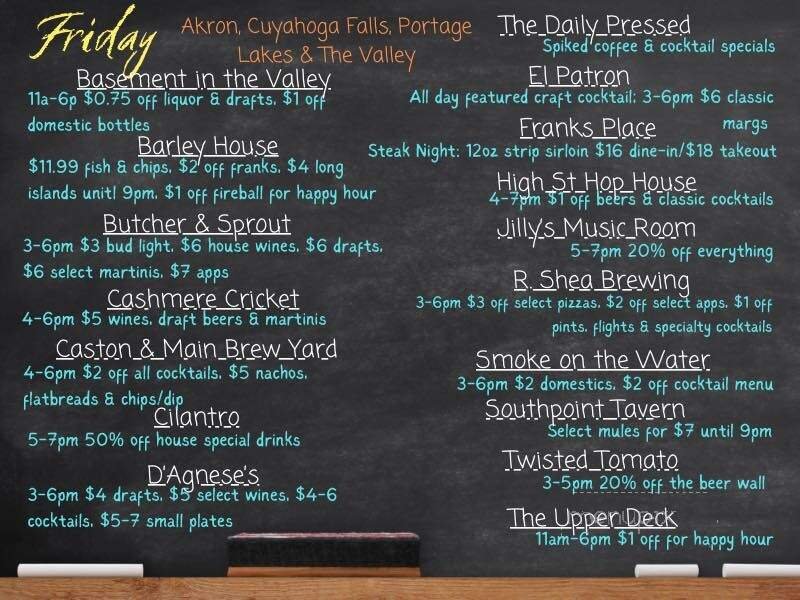 Friday
Akron, Cuyahoga Falls, Portage
Lakes & The Valley
Basement in the Valley
11a-6p $0.75 off liquor & drafts, $1 off
domestic bottles
Barley House
$11.99 fish & chips, $2 off franks, $4 long
islands unitl 9pm, $1 off fireball for happy hour
Butcher & Sprout
3-6pm $3 bud light, $6 house wines, $6 drafts,
$6 select martinis, $7 apps
Cashmere Cricket
4-6pm $5 wines, draft beers & martinis
Caston & Main Brew Yard
4-6pm $2 off all cocktails, $5 nachos,
flatbreads & chips/dip
Cilantro
5-7pm 50% off house special drinks
D'Agnese's
3-6pm $4 drafts, $5 select wines, $4-6
cocktails, $5-7 small plates
The Daily Pressed
Spiked coffee & cocktail specials
El Patron
All day featured craft cocktail; 3-6pm $6 classic
margs
Franks Place
Steak Night: 12oz strip sirloin $16 dine-in/$18 takeout
High St Hop House
4-7pm $1 off beers & classic cocktails
Jilly's Music Room
5-7pm 20% off everything
R. Shea Brewing
3-6pm $3 off select pizzas, $2 off select apps, $1 off
pints, flights & specialty cocktails
Smoke on the Water
3-6pm $2 domestics, $2 off cocktail menu
Southpoint Tavern
Select mules for $7 until 9pm
Twisted Tomato
3-5pm 20% off the beer wall
The Upper Deck
11am-6pm $1 off for happy hour